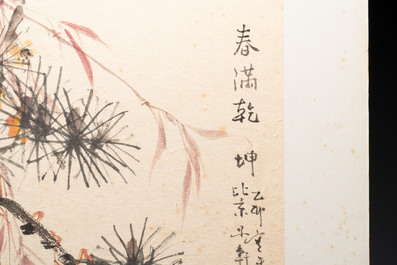 春滿乾坤
乙卯
北京